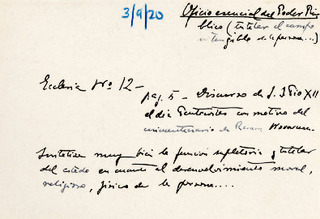 3/9/20
Oficio esencial del Poder Pú
blico (tutelar el campo
intangible de la persona...)
Ecclesia Nº 12 -
pag. 5 - Discurso de S. S. Pio XII
el día Pentecostés con motivo del
cincuentenario de Rerum Novarum.
Sintetiza muy bien la función supletoria y tutelar
del estado en cuanto al desenvolvimiento moral,
religioso, físico de la persona....